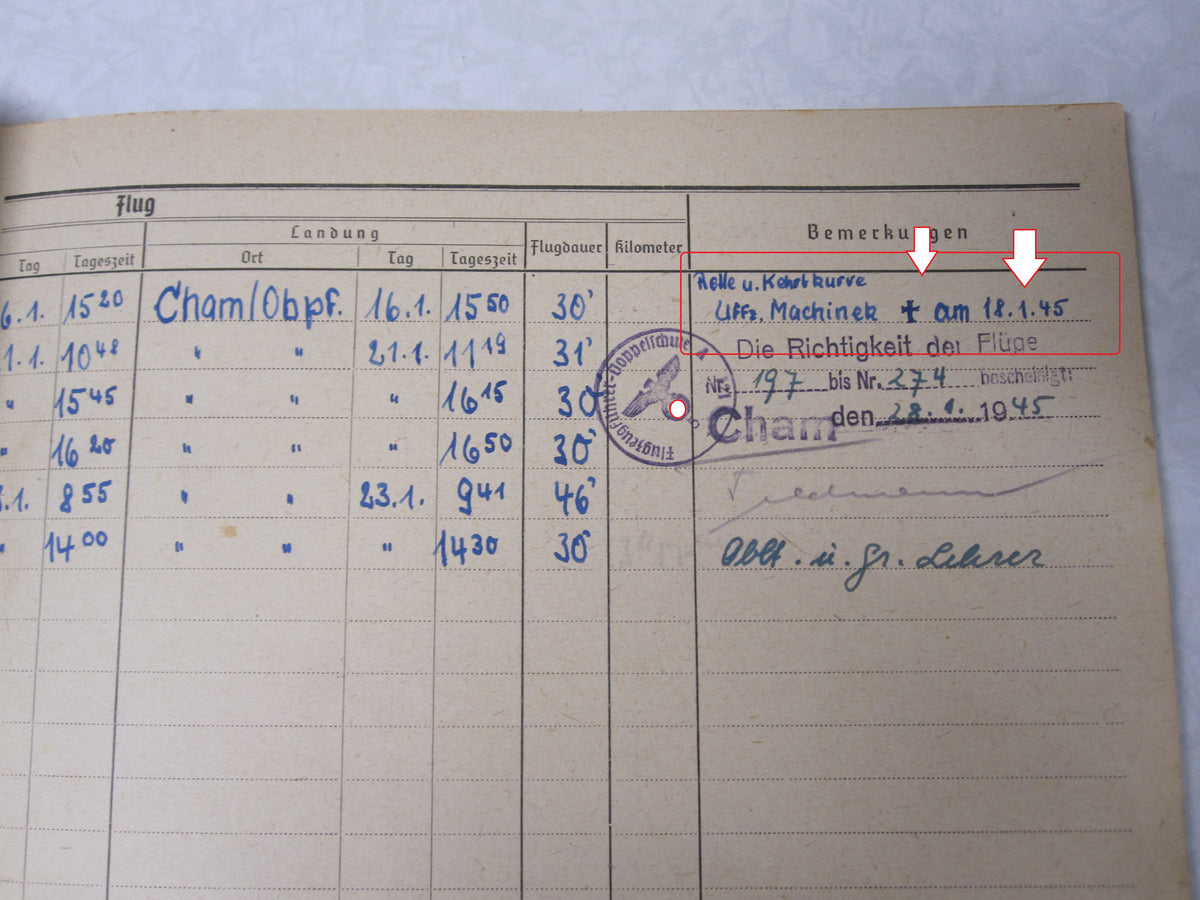 Flug
Landung
Bemerkungen
Tag Tageszeit Ort Tag Tageszeit Flugdauer Kilometer
6.1. 15 20 Cham/Obpf. 16.1. 15 50 30' Rolle u. Kehrtkurve
Uffz. Machinek † am 18.1.45
1.1. 10 48 " " 21.1. 11 19 31' Die Richtigkeit der Flüge
" 15 45 " " " 16 15 30' Nr. 197 bis Nr. 274 bescheinigt:
Cham den 28.1. 1945
" 16 20 " " " 16 50 30'
3.1. 8 55 " " 23.1. 9 41 46'
" 14 00 " " " 14 30 30' Oblt. u. Gr. Lehrer
Flugzeugführer-Doppelschule A